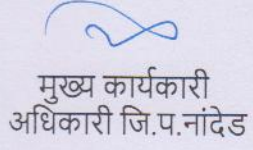 मुख्य कार्यकारी
अधिकारी जि.प.नांदेड